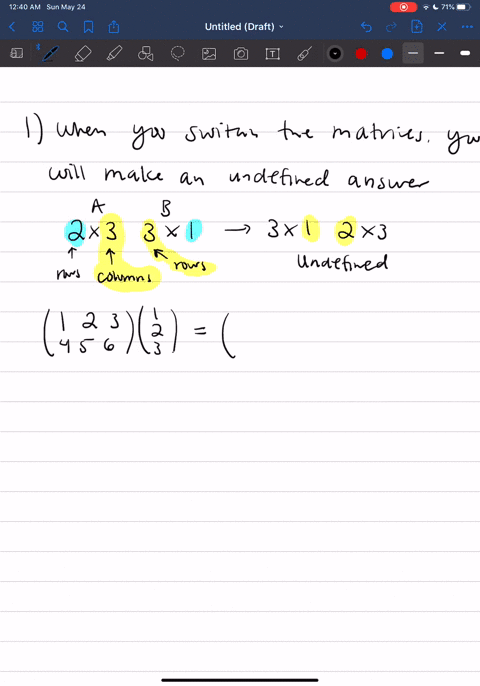 12:40 AM Sun May 24
71%
Untitled (Draft)
1) When you switch the matrices, you
will make an undefined answer
A B
2 × 3 3 × 1 → 3 × 1 2 × 3
↑ rows ↑ columns rows Undefined
( 1 2 3 ) ( 1 ) = (
4 5 6 2
3